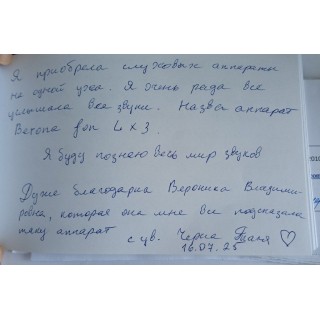 Я приобрела служовых аппараты
на одной ухо. Я очень рада все
услышала вса звуки. Назвы аппарат
Ветопа fon L x 3.
Я буду познаю весь мир звуков
Дуже благодарна Вероника Владими-
ровна, которая она мне все подсказала
таку аппарат
с ув. Черна Таня ♡
16.07.25
2010